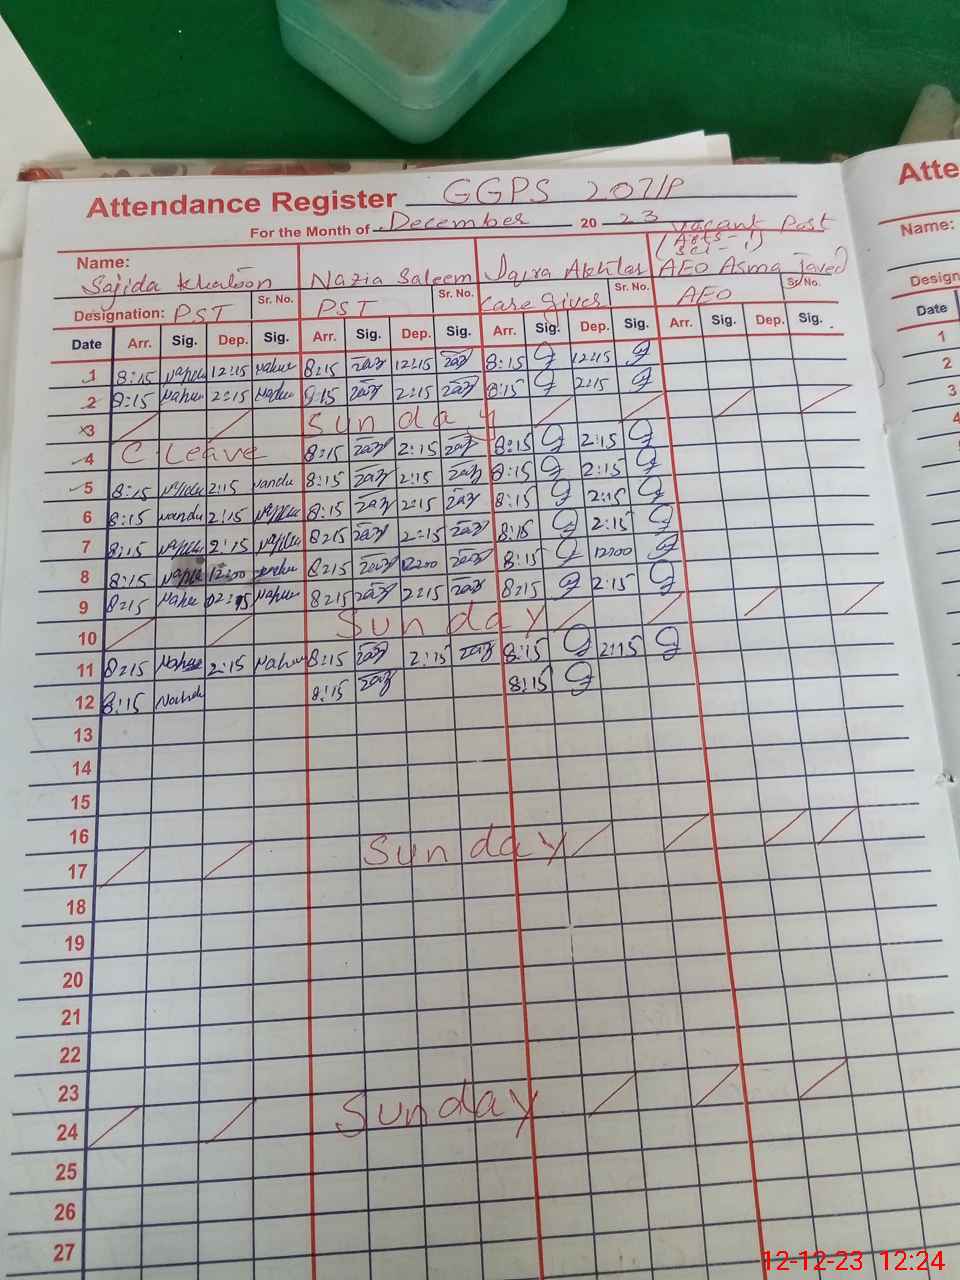 Attendance Register GGPS 207/P
For the Month of December 20 23 Vacant Post
(Arts-1)
Sci-1
Name:
Sajida Khatoon Nazia Saleem Iqra Akhtar AEO Asma Javed
Sr. No. Sr. No. Sr. No. Sr. No.
Designation: PST PST Care Giver AEO
Date Arr. Sig. Dep. Sig. Arr. Sig. Dep. Sig. Arr. Sig. Dep. Sig. Arr. Sig. Dep. Sig.
1 8:15 12:15 8:15 12:15 8:15 12:15
2 8:15 2:15 8:15 2:15 8:15 2:15
3 Sunday
4 C. Leave 8:15 2:15 8:15 2:15
5 8:15 2:15 8:15 2:15 8:15 2:15
6 8:15 2:15 8:15 2:15 8:15 2:15
7 8:15 2:15 8:15 2:15 8:15 2:15
8 8:15 12:00 8:15 12:00 8:15 12:00
9 8:15 02:15 8:15 2:15 8:15 2:15
10 Sunday
11 8:15 2:15 8:15 2:15 8:15 2:15
12 8:15 8:15 8:15
13
14
15
16
17 Sunday
18
19
20
21
22
23
24 Sunday
25
26
27
Atte
Name:
Design
Date
1
2
3
4
12-12-23 12:24